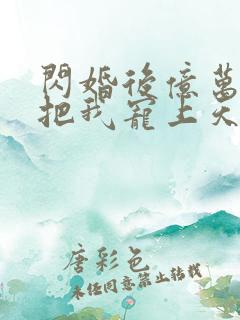 閃婚後億萬
把我寵上天
唐彩色
未經同意禁止轉載